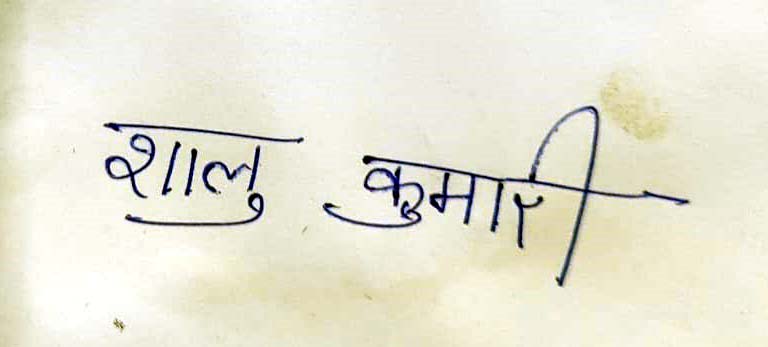 शालु कुमारी